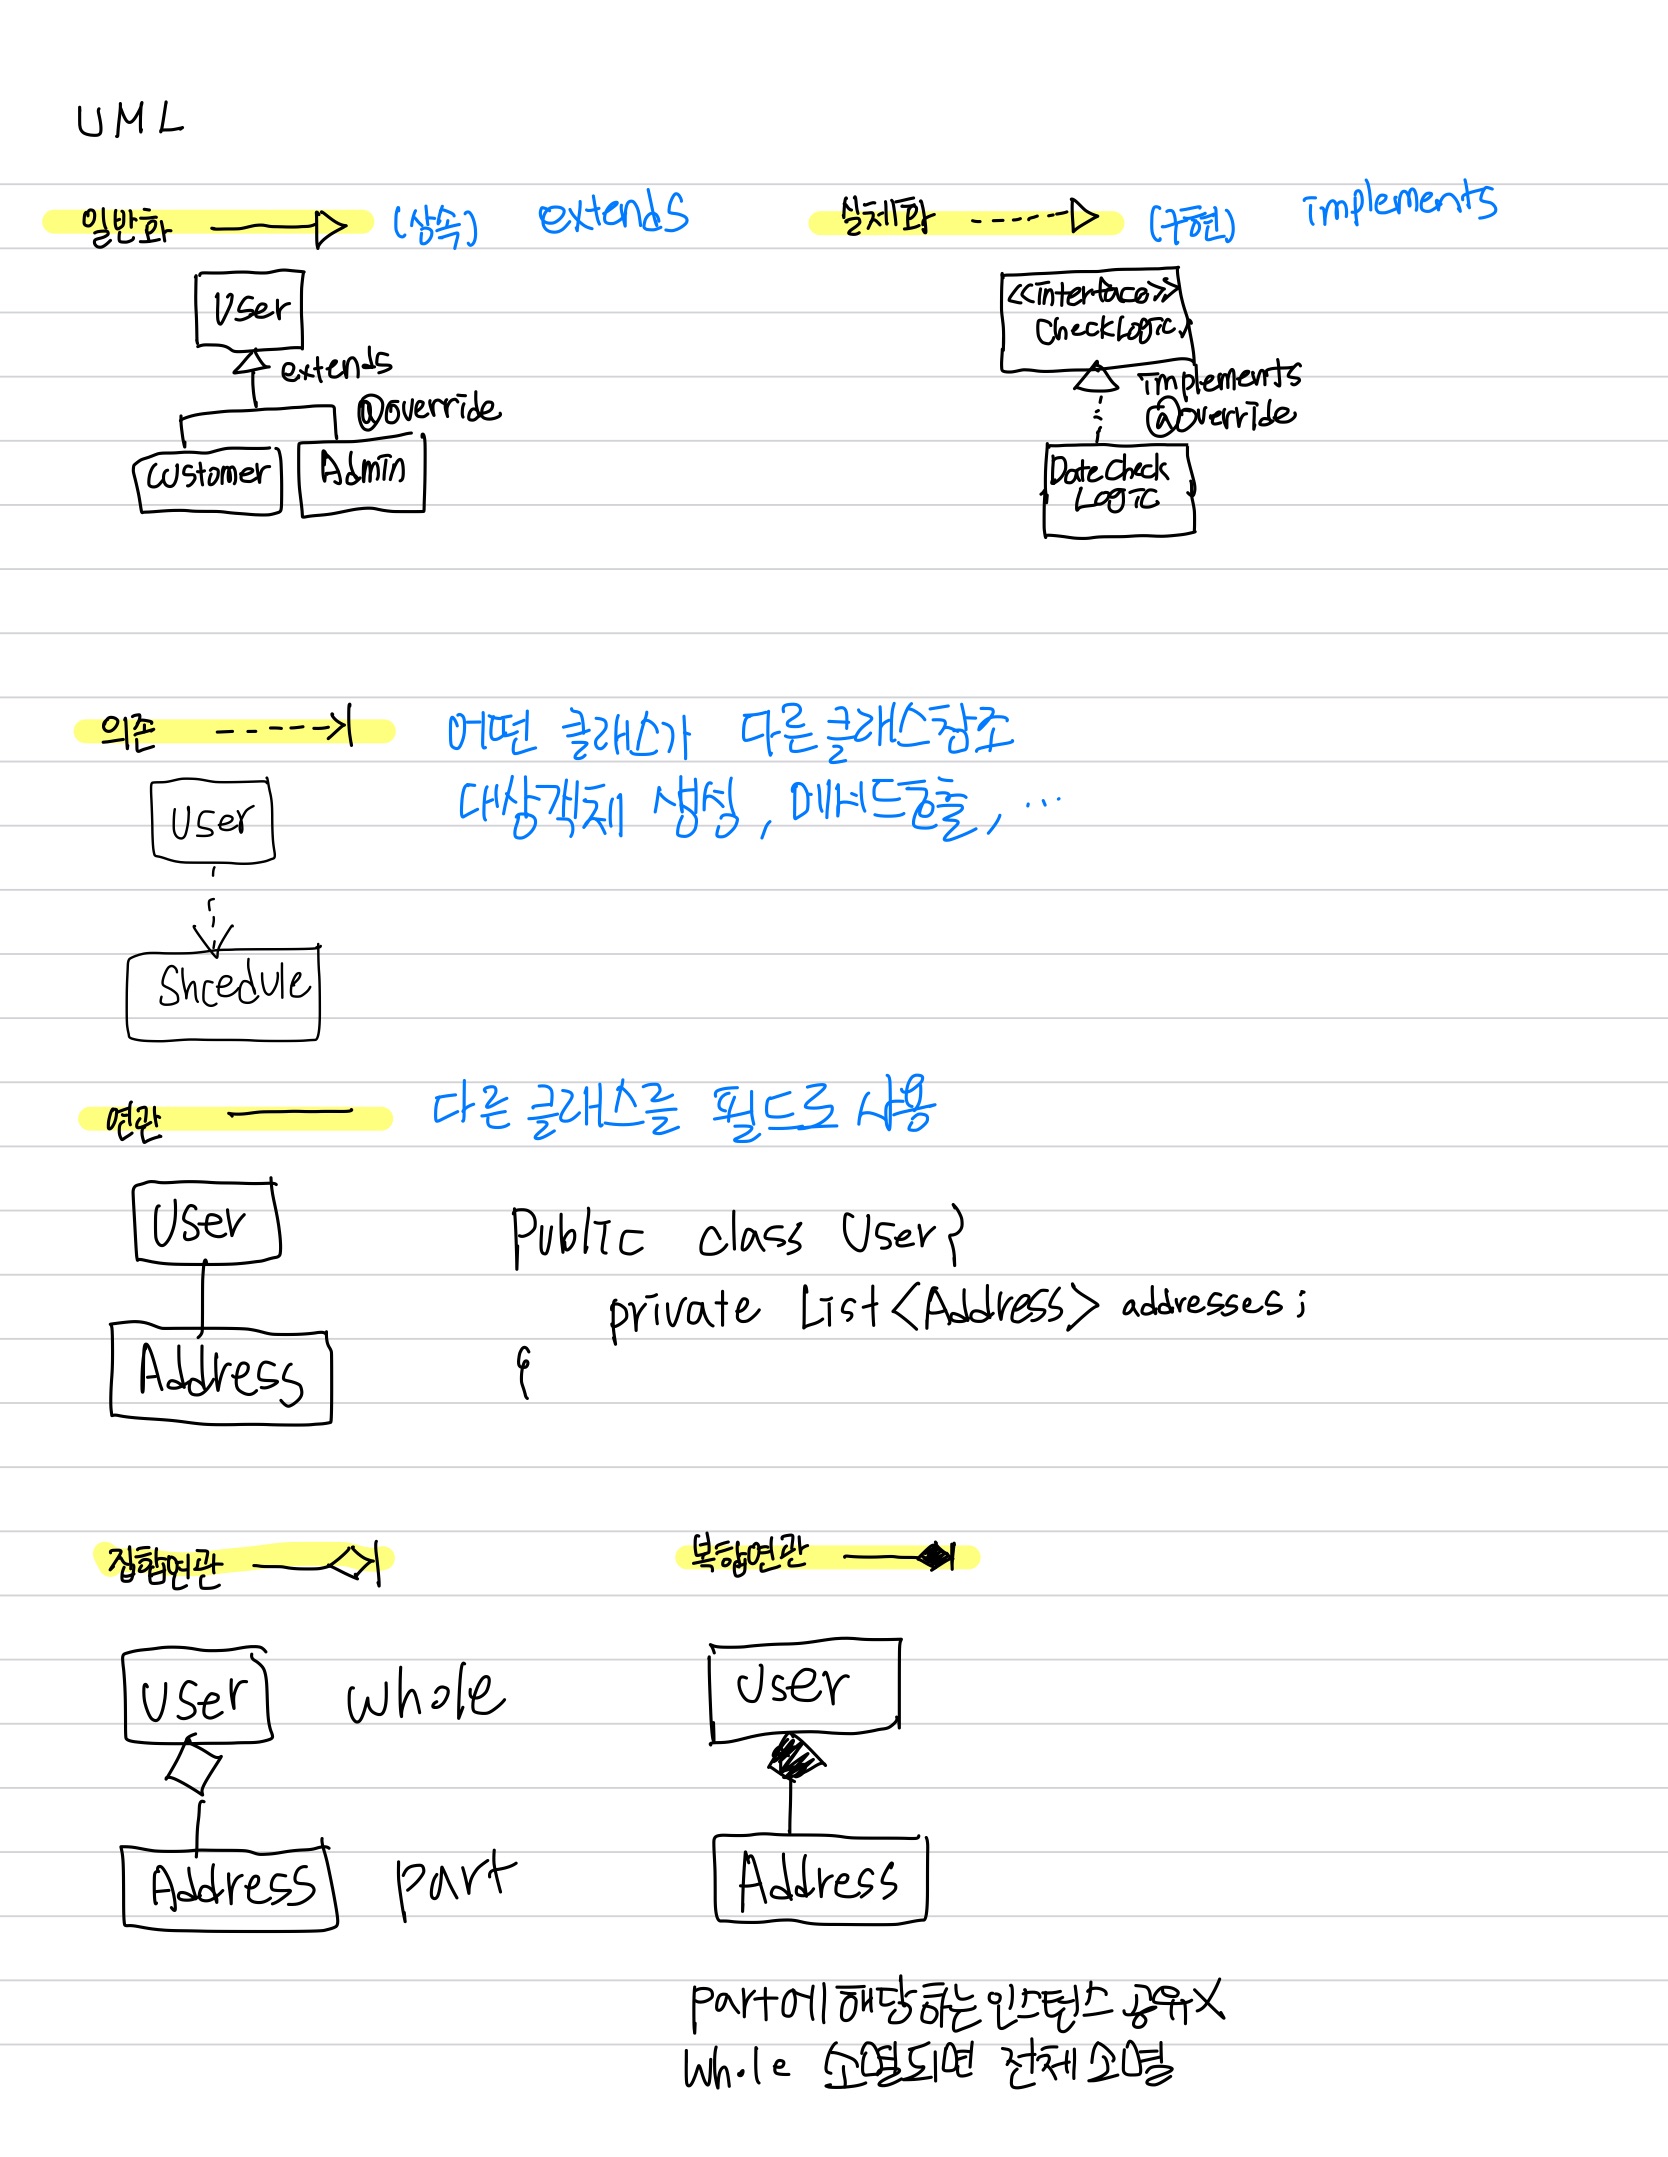 UML
일반화 (상속) extends
실체화 (구현) implements
User
extends
@override
Customer
Admin
<<interface>>
CheckLogic
implements
@override
DateCheck
Logic
의존 어떤 클래스가 다른클래스참조
대상객체 생성, 메서드호출, ...
User
Shcedule
연관 다른 클래스를 필드로 사용
User
Address
Public class User}
private List<Address> addresses;
{
집합연관
복합연관
User
whole
Address
part
User
Address
part에 해당하는 인스턴스 공유X
whole 소멸되면 전체소멸